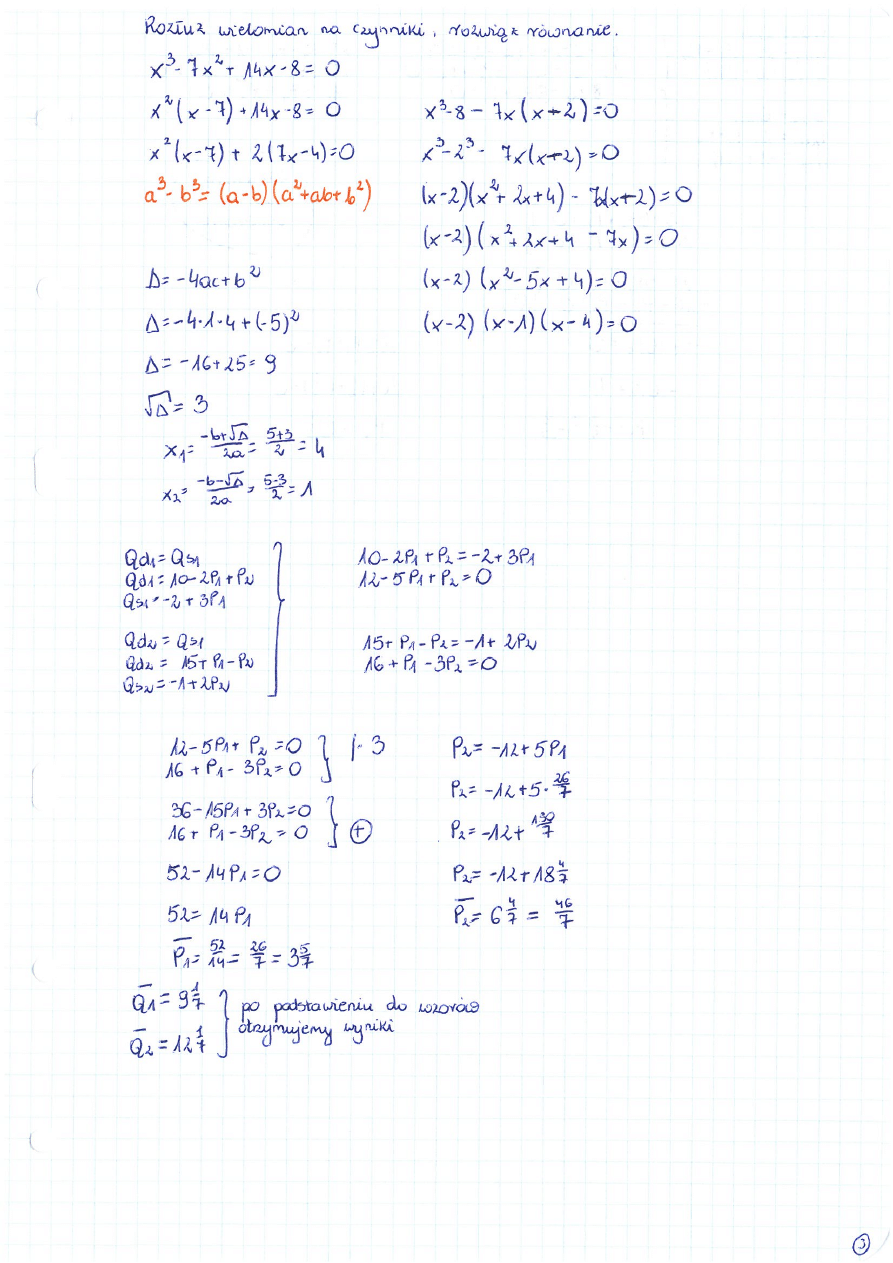 Rozłuż wielomian na czynniki, rozwiąż równanie.
x³-7x²+14x-8=0
x²(x-7)+14x-8=0
x²(x-7)+2(7x-4)=0
a³-b³=(a-b)(a²+ab+b²)
x³-8-7x(x-2)=0
x³-2³-7x(x-2)=0
(x-2)(x²+2x+4)-7x(x-2)=0
(x-2)(x²+2x+4-7x)=0
(x-2)(x²-5x+4)=0
(x-2)(x-1)(x-4)=0
Δ=-4ac+b²
Δ=-4·1·4+(-5)²
Δ=-16+25=9
√Δ=3
x₁=(-b+√Δ)/2a=(5+3)/2=4
x₂=(-b-√Δ)/2a=(5-3)/2=1
Qd₁=Qs₁
Qd₁=10-2P₁+P₂
Qs₁=-2+3P₁
Qd₂=Qs₁
Qd₂=15+P₁-P₂
Qs₂=-1+2P₂
10-2P₁+P₂=-2+3P₁
12-5P₁+P₂=0
15+P₁-P₂=-1+2P₂
16+P₁-3P₂=0
12-5P₁+P₂=0 } |·3
16+P₁-3P₂=0
36-15P₁+3P₂=0
16+P₁-3P₂=0 } ⊕
52-14P₁=0
52=14P₁
P̄₁=52/14=26/7=3 5/7
P₂=-12+5P₁
P₂=-12+5·26/7
P₂=-12+130/7
P₂=-12+18 4/7
P̄₂=6 4/7=46/7
Q̄₁=9 1/7 } po podstawieniu do wzorów
Q̄₂=12 1/7 } otrzymujemy wyniki
③